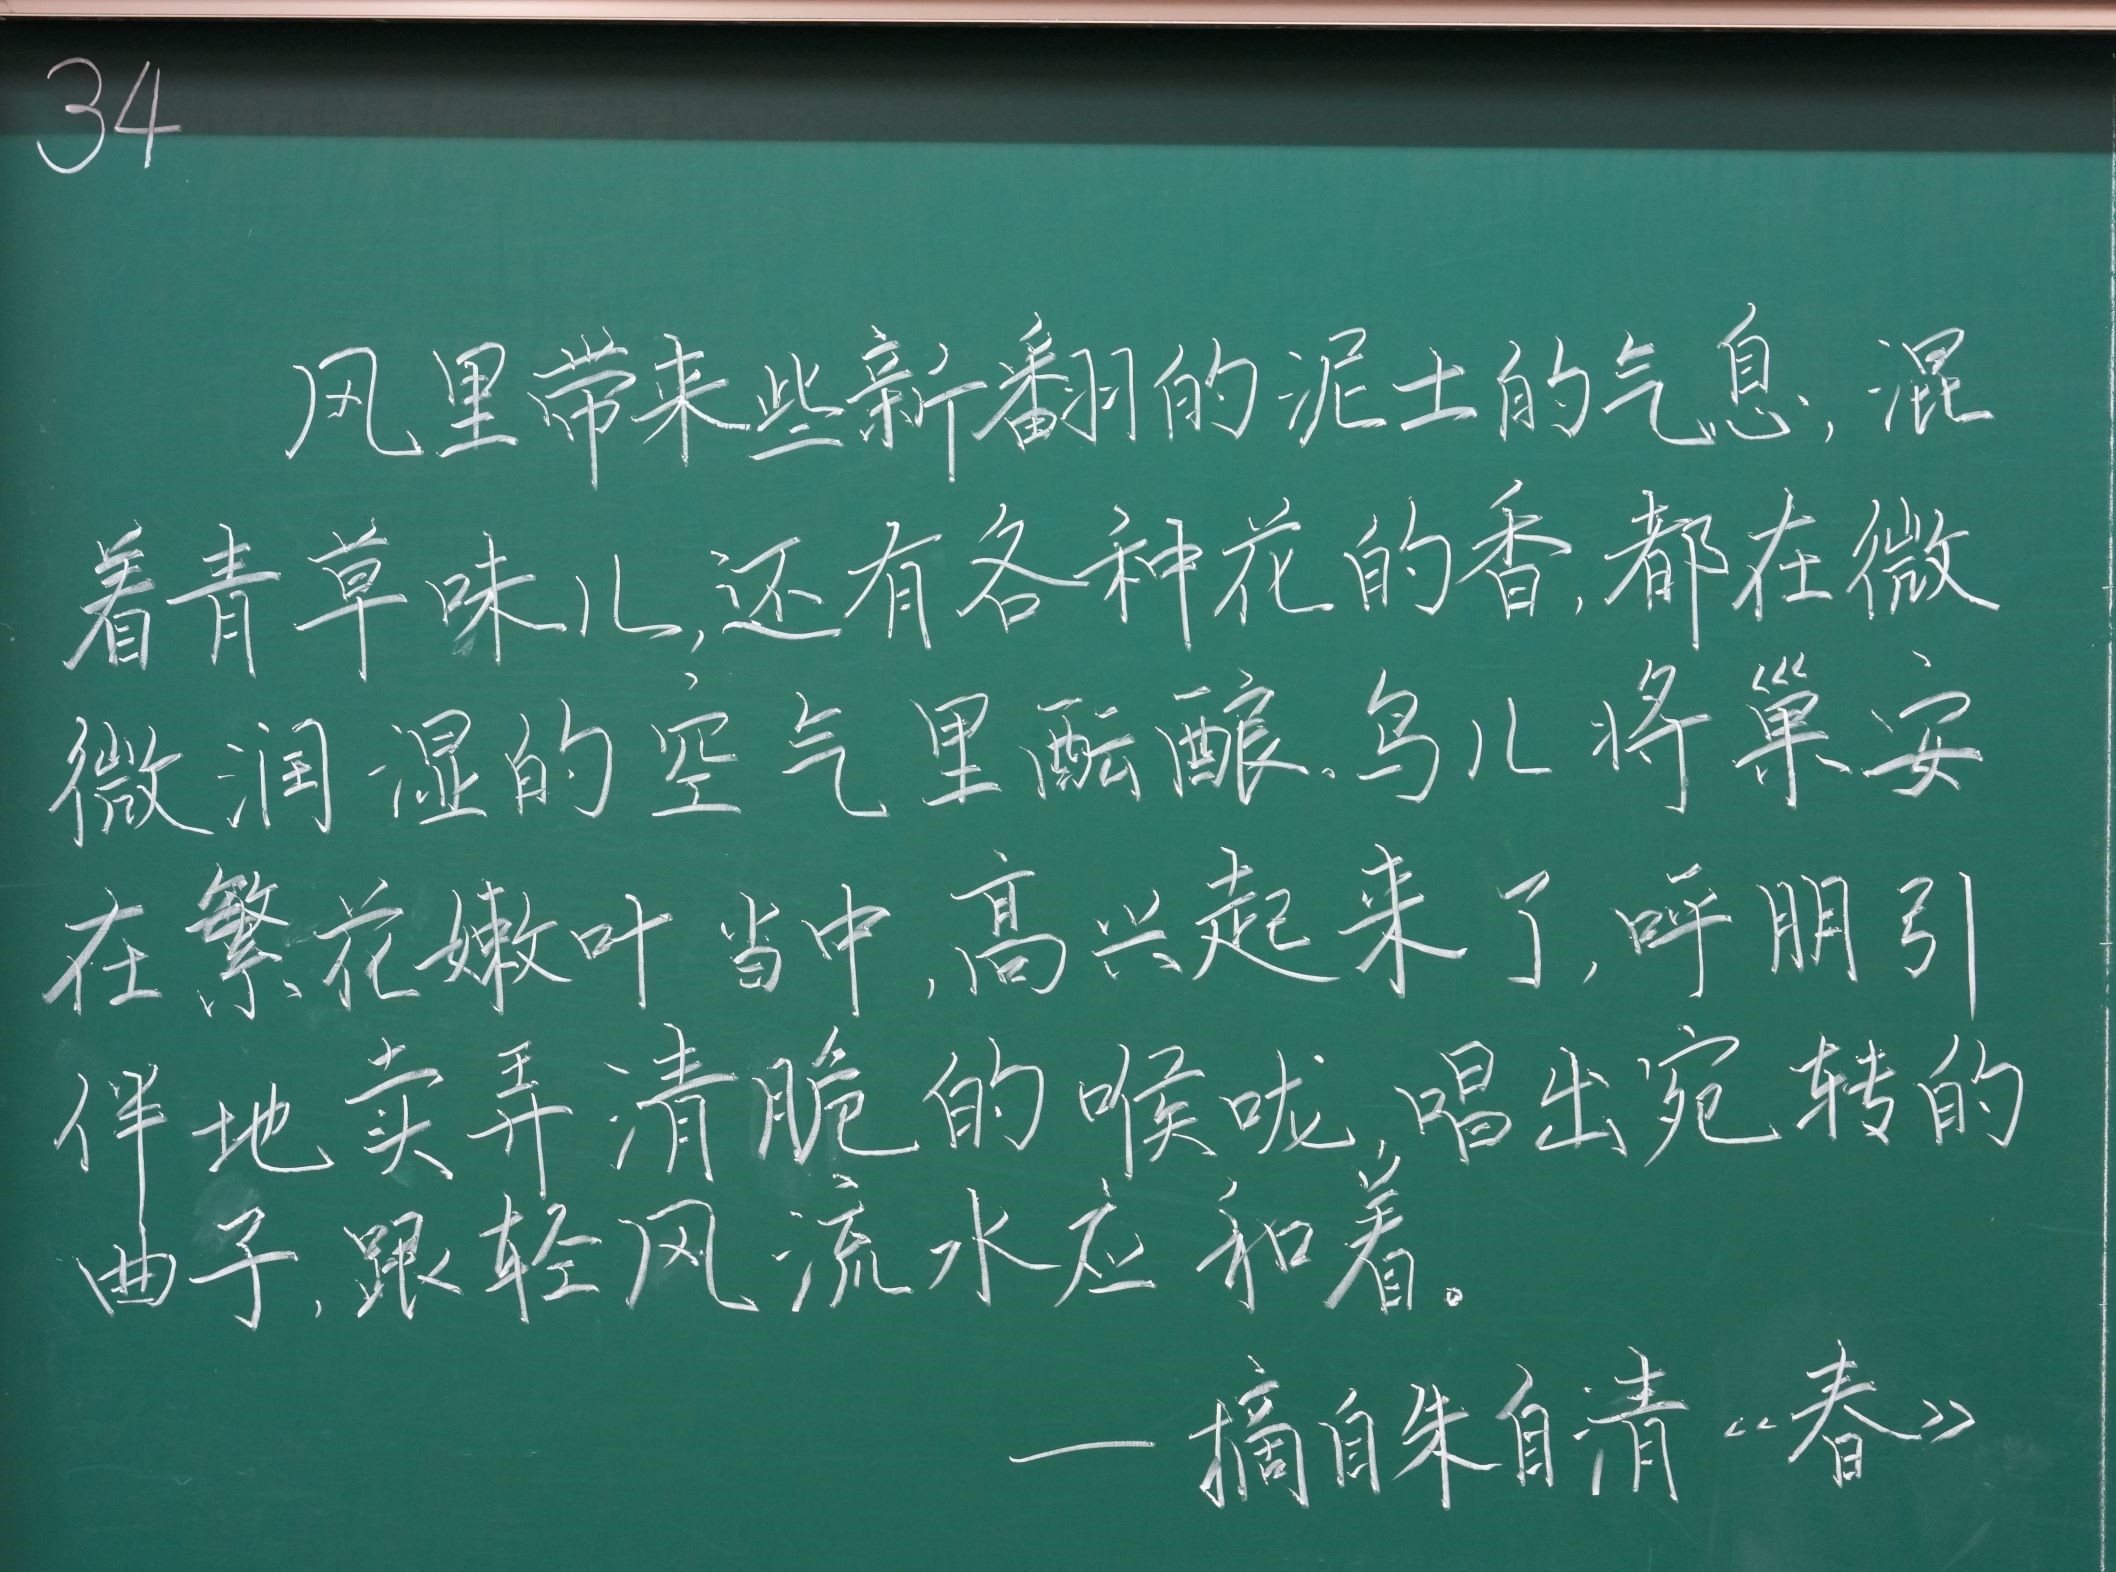 34
风里带来些新翻的泥土的气息,混
着青草味儿,还有各种花的香,都在微
微润湿的空气里酝酿.鸟儿将巢安
在繁花嫩叶当中,高兴起来了,呼朋引
伴地卖弄清脆的喉咙,唱出宛转的
曲子,跟轻风流水应和着。
—摘自朱自清《春》